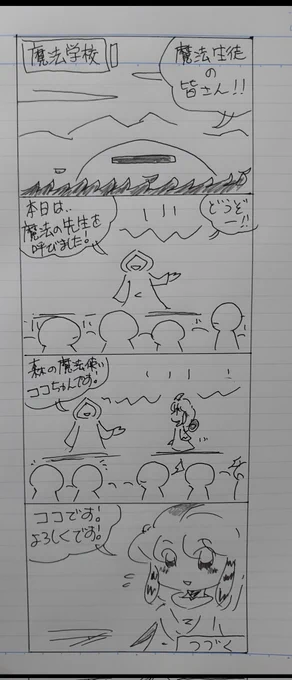 魔法学校
魔法生徒
の
皆さん!!
本日は、
魔法の先生を
呼びました!
どうぞ
ー!!
森の魔法使い
ココちゃんです!
ココです!
よろしくです!
つづく